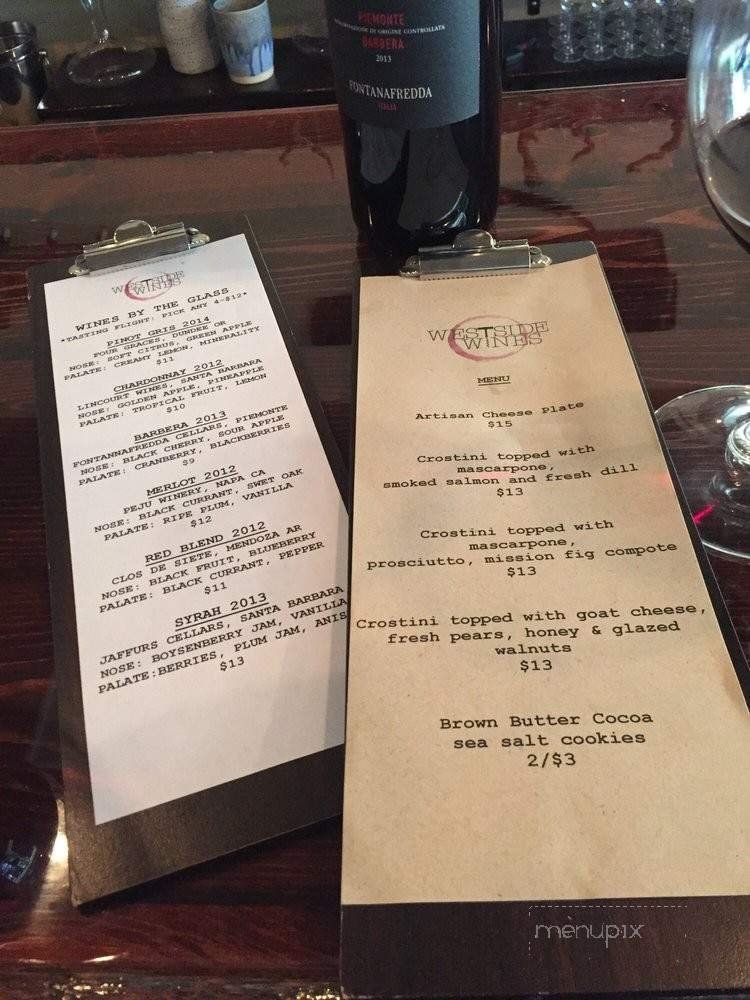 PIEMONTE
DENOMINAZIONE DI ORIGINE CONTROLLATA
BARBERA
2013
FONTANAFREDDA
ITALIA
WESTSIDE
WINES
WINES BY THE GLASS
*TASTING FLIGHT: PICK ANY 4-$12*
PINOT GRIS 2014
FOUR GRACES, DUNDEE OR
NOSE: SOFT CITRUS, GREEN APPLE
PALATE: CREAMY LEMON, MINERALITY
$11
CHARDONNAY 2012
LINCOURT WINES, SANTA BARBARA
NOSE: GOLDEN APPLE, PINEAPPLE
PALATE: TROPICAL FRUIT, LEMON
$10
BARBERA 2013
FONTANNAFREDDA CELLARS, PIEMONTE
NOSE: BLACK CHERRY, SOUR APPLE
PALATE: CRANBERRY, BLACKBERRIES
$9
MERLOT 2012
PEJU WINERY, NAPA CA
NOSE: BLACK CURRANT, SWET OAK
PALATE: RIPE PLUM, VANILLA
$12
RED BLEND 2012
CLOS DE SIETE, MENDOZA AR
NOSE: BLACK FRUIT, BLUEBERRY
PALATE: BLACK CURRANT, PEPPER
$11
SYRAH 2013
JAFFURS CELLARS, SANTA BARBARA
NOSE: BOYSENBERRY JAM, VANILLA
PALATE:BERRIES, PLUM JAM, ANIS
$13
WESTSIDE
WINES
MENU
Artisan Cheese Plate
$15
Crostini topped with
mascarpone,
smoked salmon and fresh dill
$13
Crostini topped with
mascarpone,
prosciutto, mission fig compote
$13
Crostini topped with goat cheese,
fresh pears, honey & glazed
walnuts
$13
Brown Butter Cocoa
sea salt cookies
2/$3
menupix